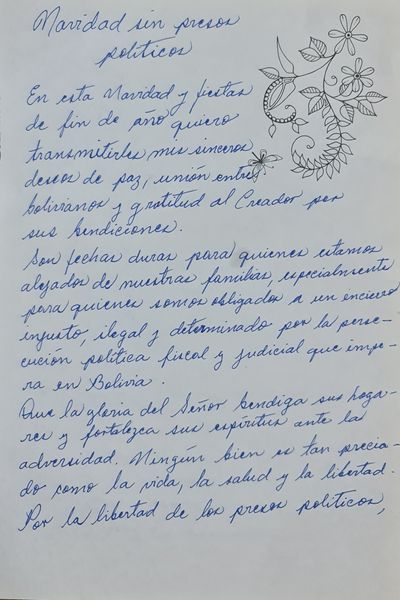 Navidad sin presos
políticos
En esta Navidad y fiestas
de fin de año quiero
transmitirles mis sinceros
deseos de paz, unión entre
bolivianos y gratitud al Creador por
sus bendiciones.
Son fechas duras para quienes estamos
alejados de nuestras familias, especialmente
para quienes somos obligados a un encierro
injusto, ilegal y determinado por la perse-
cución política fiscal y judicial que impe-
ra en Bolivia.
Que la gloria del Señor bendiga sus hoga-
res y fortalezca sus espíritus ante la
adversidad. Ningún bien es tan precia-
do como la vida, la salud y la libertad.
Por la libertad de los presos políticos,